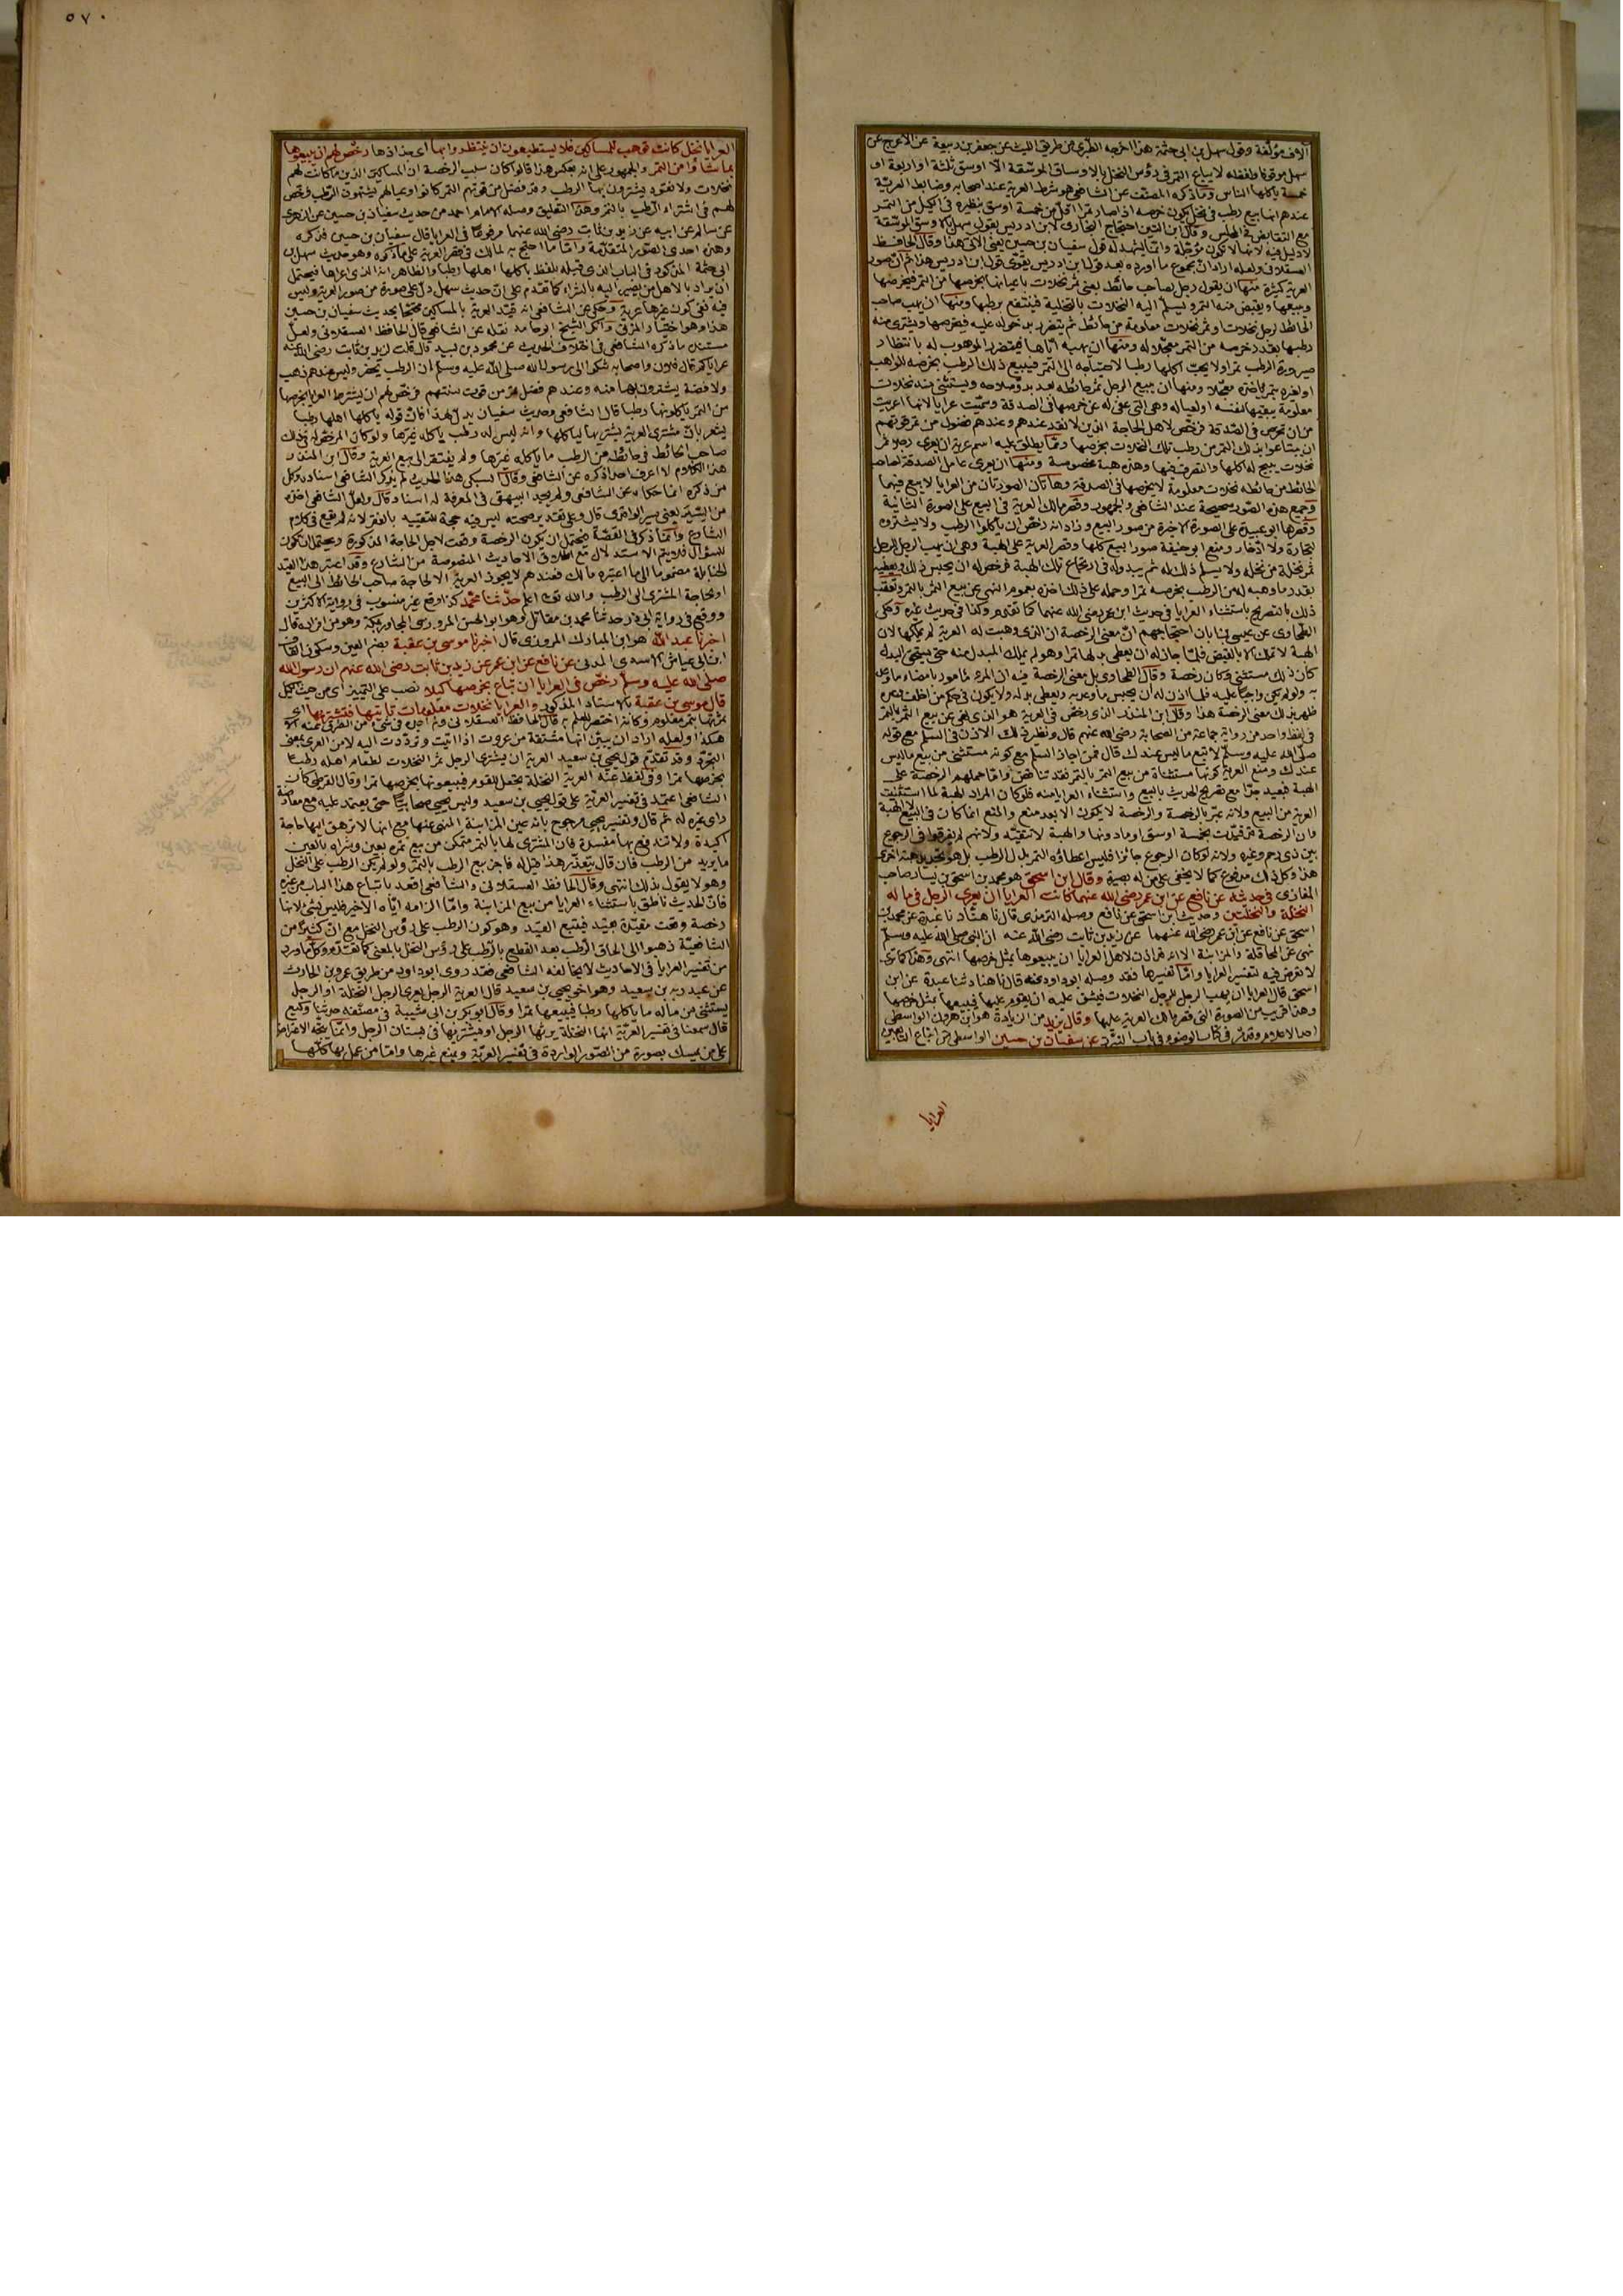 ٥٧٠
آلاف مؤلفة وقول سهل بن ابى حثمة هذا اخرجه الطبرى من طريق الليث عن جعفر بن ربيعة عن الاعرج عن
سهل موقوفا ولفظه لا يباع التمر فى رؤس النخل بالاوساق الموسقة الا اوسق ثلثة او اربعة او
خمسة ياكلها الناس وما ذكره المصنف عن الشافعى هو شرط العرية عند اصحابه وضابط العرية
عندهم انها بيع رطب فى نخل يكون خرصه اذا صار تمرا اقل من خمسة اوسق بنظيره فى الكيل من التمر
مع التقابض فى المجلس وقال ابن التين احتجاج البخارى لابن ادريس بقول سهل بالاوسق الموسقة
لا دليل فيه لانها لا تكون مؤجلة وانما يشهد له قول سفيان بن حسين يعنى الآتى هذا وقال الحافظ
العسقلانى ولعله اراد ان مجموع ما اورده بعد قول ابن ادريس يقوى قول ابن ادريس هذا ثم ان صور
العرية كثيرة منها ان يقول رجل لصاحب حائط بعنى ثمر نخلات باعيانها بخرصها من التمر فيخرصها
ويبيعها ويقبض منه التمر ويسلم اليه النخلات بالتخلية فينتفع برطبها ومنها ان يهب صاحب
الحائط لرجل نخلات او ثمر نخلات معلومة من حائطه ثم يتضرر بدخوله عليه فيخرصها ويشترى منه
رطبها بقدر خرصه من التمر معجلا له ومنها ان يهبه اياها فيتضرر الموهوب له بانتظار
صيرورة الرطب تمرا ولا يحب اكلها رطبا لاحتياجه الى التمر فيبيع ذلك الرطب بخرصه للواهب
او لغيره بتمر ياخذه معجلا ومنها ان يبيع الرجل ثمر حائطه بعد بدو صلاحه ويستثنى منه نخلات
معلومة يبقيها لنفسه او لعياله وهى التى عفى له عن خرصها فى الصدقة وسميت عرايا لانها اعريت
من ان تخرص فى الصدقة فرخص لاهل الحاجة الذين لا نقد عندهم وعندهم فضول من تمر قوتهم
ان يبتاعوا بذلك التمر من رطب تلك النخلات بخرصها ومما يطلق عليه اسم عرية ان يعرى رجلا ثمر
نخلات يبيح له اكلها والتصرف فيها وهذه هبة مخصوصة ومنها ان يعرى عامل الصدقة لصاحب
الحائط من حائطه نخلات معلومة لا يخرصها فى الصدقة وهاتان الصورتان من العرايا لا بيع فيهما
وجميع هذه الصور صحيحة عند الشافعى والجمهور وقصر مالك العرية فى البيع على الصورة الثانية
وقصرها ابو عبيدة على الصورة الاخيرة من صور البيع وزاد انه رخص ان ياكلوا الرطب ولا يشتروه
لتجارة ولا ادخار ومنع ابو حنيفة صور البيع كلها وقصر العرية على الهبة وهى ان يهب الرجل للرجل
ثمر نخلة من نخله ولا يسلم ذلك له ثم يبدو له فى ارتجاع تلك الهبة فرخص له ان يحبس ذلك ويعطيه
بقدر ما وهبه له من الرطب بخرصه تمرا وحمله على ذلك اخذه بعموم النهى عن بيع الثمر بالتمر وتعقب
ذلك بالتصريح باستثناء العرايا فى حديث ابن عمر رضى الله عنهما كما تقدم وكذا فى حديث غيره وحكى
الطحاوى عن عيسى بن ابان احتجاجهم ان معنى الرخصة ان الذى وهبت له العرية لم يملكها لان
الهبة لا تملك الا بالقبض فلما جاز له ان يعطى بدلها تمرا وهو لم يملك المبدل منه حتى يستحق البدل
كان ذلك مستثنى وكان رخصة وقال الطحاوى بل معنى الرخصة فيه ان المرء مأمور بامضاء ما وعد
به ولو لم يكن واجبا عليه فلما اذن له ان يحبس ما وعد به ويعطى بدله ولا يكون فى حكم من اخلف وعده
ظهر بذلك معنى الرخصة هذا وقال ابن المنذر الذى رخص فى العرية هو الذى نهى عن بيع الثمر بالتمر
فى لفظ واحد من رواية جماعة من الصحابة رضى الله عنهم قال ونظير ذلك الاذن فى السلم مع قوله
صلى الله عليه وسلم لا تبع ما ليس عندك قال فمن اجاز السلم مع كونه مستثنى من بيع ما ليس
عندك ومنع العرية مع كونها مستثناة من بيع الثمر بالتمر فقد تناقض واما حملهم الرخصة على
الهبة فبعيد جدا مع تصريح الحديث بالبيع واستثناء العرايا منه فلو كان المراد الهبة لما استثنيت
العرية من البيع ولانه عبر بالرخصة والرخصة لا يكون الا بعد منع والمنع انما كان فى البيع لا الهبة
وبان الرخصة قد قيدت بخمسة اوسق او ما دونها والهبة لا تتقيد ولانهم لم يفرقوا فى الرجوع
بين ذى رحم وغيره ولانه لو كان الرجوع جائزا فليس اعطاؤه التمر بدل الرطب بل هو تجديد هبة اخرى
هذا وكل ذلك مدفوع كما لا يخفى على من له بصيرة وقال ابن اسحق هو محمد بن اسحق بن يسار صاحب
المغازى فى حديثه عن نافع عن ابن عمر رضى الله عنهما كانت العرايا ان يعرى الرجل فى ماله
النخلة والنخلتين وحديث ابن اسحق عن نافع وصله الترمذى قال نا هناد نا عبدة عن محمد بن
اسحق عن نافع عن ابن عمر رضى الله عنهما عن زيد بن ثابت رضى الله عنه ان النبى صلى الله عليه وسلم
نهى عن المحاقلة والمزابنة الا انه قد اذن لاهل العرايا ان يبيعوها بمثل خرصها انتهى وهذا كما ترى
لا تعرض فيه لتفسير العرايا واما تفسيرها فقد وصله ابو داود عنه قال نا هناد ثنا عبدة عن ابن
اسحق قال العرايا ان يهب الرجل للرجل النخلات فيشق عليه ان يقوم عليها فيبيعها بمثل خرصها
وهذا قريب من الصورة التى قصر مالك العرية عليها وقال يزيد من الزيادة هو ابن هرون الواسطى
احد الاعلام وقد مر فى كتاب الوضوء فى باب التبرز عن سفيان بن حسين الواسطى من اتباع التابعين
العرايا
العرايا نخل كانت توهب للمساكين فلا يستطيعون ان ينتظروا بها اى جذاذها رخص لهم ان يبيعوها
بما شاؤا من التمر والجمهور على انه بعكس هذا قالوا كان سبب الرخصة ان المساكين الذين ما كانت لهم
نخلات ولا نقود يشترون بها الرطب وقد فضل من قوتهم التمر كانوا وعيالهم يشتهون الرطب فرخص
لهم فى اشتراء الرطب بالتمر وهذا التعليق وصله الامام احمد من حديث سفيان بن حسين عن الزهرى
عن سالم عن ابيه عن زيد بن ثابت رضى الله عنهما مرفوعا فى العرايا قال سفيان بن حسين فذكره
وهذه احدى الصور المتقدمة واما ما احتج به لمالك فى قصر العرية على ما ذكره وهو حديث سهل بن
ابى حثمة المذكور فى الباب الذى قبله بلفظ ياكلها اهلها رطبا والظاهر انه الذى اعراها فيحتمل
ان يراد بالاهل من يصير اليه بالشراء كما تقدم على ان حديث سهل دل على صورة من صور العرية وليس
فيه نفى كون غيرها عرية وحكى عن الشافعى انه قيد العرية بالمساكين محتجا بحديث سفيان بن حسين
هذا وهو اختيار المزنى وانكر الشيخ ابو حامد نقله عن الشافعى قال الحافظ العسقلانى ولعل
مستنده ما ذكره الشافعى فى اختلاف الحديث عن محمود بن لبيد قال قلت لزيد بن ثابت رضى الله عنه
عراياكم قال فلان واصحابه شكوا الى رسول الله صلى الله عليه وسلم ان الرطب يحضر وليس عندهم ذهب
ولا فضة يشترون بها منه وعندهم فضل تمر من قوت سنتهم فرخص لهم ان يشتروا العرايا بخرصها
من التمر ياكلونها رطبا قال الشافعى وحديث سفيان يدل لهذا فان قوله ياكلها اهلها رطبا
يشعر بان مشترى العرية يشتريها لياكلها وانه ليس له رطب ياكله غيرها ولو كان المرخص له فى ذلك
صاحب الحائط فى حائطه من الرطب ما ياكله غيرها ولم يفتقر الى بيع العرية وقال ابن المنذر
هذا الكلام لا اعرف احدا ذكره عن الشافعى وقال السبكى هذا الحديث لم يذكر الشافعى اسناده وكل
من ذكره انما حكاه عن الشافعى ولم يجد البيهقى فى المعرفة له اسنادا قال ولعل الشافعى اخذه
من السير يعنى سير الواقدى قال وعلى تقدير صحته ليس فيه حجة للتقييد بالفقر لانه لم يقع فى كلام
الشارع وانما ذكر فى القصة فيحتمل ان يكون الرخصة وقعت لاجل الحاجة المذكورة ويحتمل ان يكون
للسؤال فلا يتم الاستدلال مع اطلاق الاحاديث المنصوصة من الشارع وقد اعتبر هذا القيد
الحنابلة مضموما الى ما اعتبره مالك فعندهم لا يجوز العرية الا لحاجة صاحب الحائط الى البيع
او لحاجة المشترى الى الرطب والله تعالى اعلم حدثنا محمد كذا وقع غير منسوب فى رواية الاكثرين
ووقع فى رواية ابى ذر حدثنا محمد بن مقاتل وهو ابو الحسن المروزى المجاور بمكة وهو من افراده قال
اخبرنا عبد الله هو ابن المبارك المروزى قال اخبرنا موسى بن عقبة بضم العين وسكون القاف
ابن ابى عياش الاسدى المدنى عن نافع عن ابن عمر عن زيد بن ثابت رضى الله عنهم ان رسول الله
صلى الله عليه وسلم رخص فى العرايا ان تباع بخرصها كيلا نصب على التمييز اى من حيث الكيل
قال موسى بن عقبة بالاسناد المذكور والعرايا نخلات معلومات تأتيها فتشتريها اى
ثمرتها بتمر معلوم وكانه اختصر للعلم به قال الحافظ العسقلانى ولم اجده فى شىء من الطرق عنه الا
هكذا ولعله اراد ان يبين انها مشتقة من عروت اذا اتيت وترددت اليه لا من العرى بمعنى
التجرد وقد تقدم قول يحيى بن سعيد العرية ان يشترى الرجل ثمر النخلات لطعام اهله رطبا
بخرصها تمرا وفى لفظ عنه العرية النخلة تجعل للقوم فيبيعونها بخرصها تمرا وقال القرطبى كان
الشافعى اعتمد فى تفسير العرية على قول يحيى بن سعيد وليس يحيى صحابيا حتى يعتمد عليه مع معارضة
رأى غيره له ثم قال وتفسير يحيى مرجوح بانه عين المزابنة المنهى عنها مع انها لا ترهق اليها حاجة
اكيدة ولا تندفع بها مفسدة فان المشترى لها بالتمر متمكن من بيع تمره بعين وشرائه بالعين
ما يريد من الرطب فان قال يتعذر هذا قيل له فاجز بيع الرطب بالتمر ولو لم يكن الرطب على النخل
وهو لا يقول بذلك انتهى وقال الحافظ العسقلانى والشافعى اقعد باتباع هذا الباب من غيره
فان الحديث ناطق باستثناء العرايا من بيع المزابنة واما الزامه اياه الاخير فليس بشىء لانها
رخصة وقعت مقيدة بقيد فيتبع القيد وهو كون الرطب على رؤس النخل مع ان كثيرا من
الشافعية ذهبوا الى الحاق الرطب بعد القطع بالرطب على رؤس النخل بالمعنى كما تقدم وكل ما ورد
من تفسير العرايا فى الاحاديث لا يخالفه الشافعى فقد روى ابو داود من طريق عمرو بن الحارث
عن عبد ربه بن سعيد وهو اخو يحيى بن سعيد قال العرية الرجل يعرى الرجل النخلة او الرجل
يستثنى من ماله ما ياكلها رطبا فيبيعها تمرا وقال ابو بكر بن ابى شيبة فى مصنفه حدثنا وكيع
قال سمعنا فى تفسير العرية انها النخلة يرثها الرجل او يشتريها فى بستان الرجل وانما يتجه الاعتراض
على من تمسك بصورة من الصور الواردة فى تفسير العرية ويمنع غيرها واما من عمل بها كلها